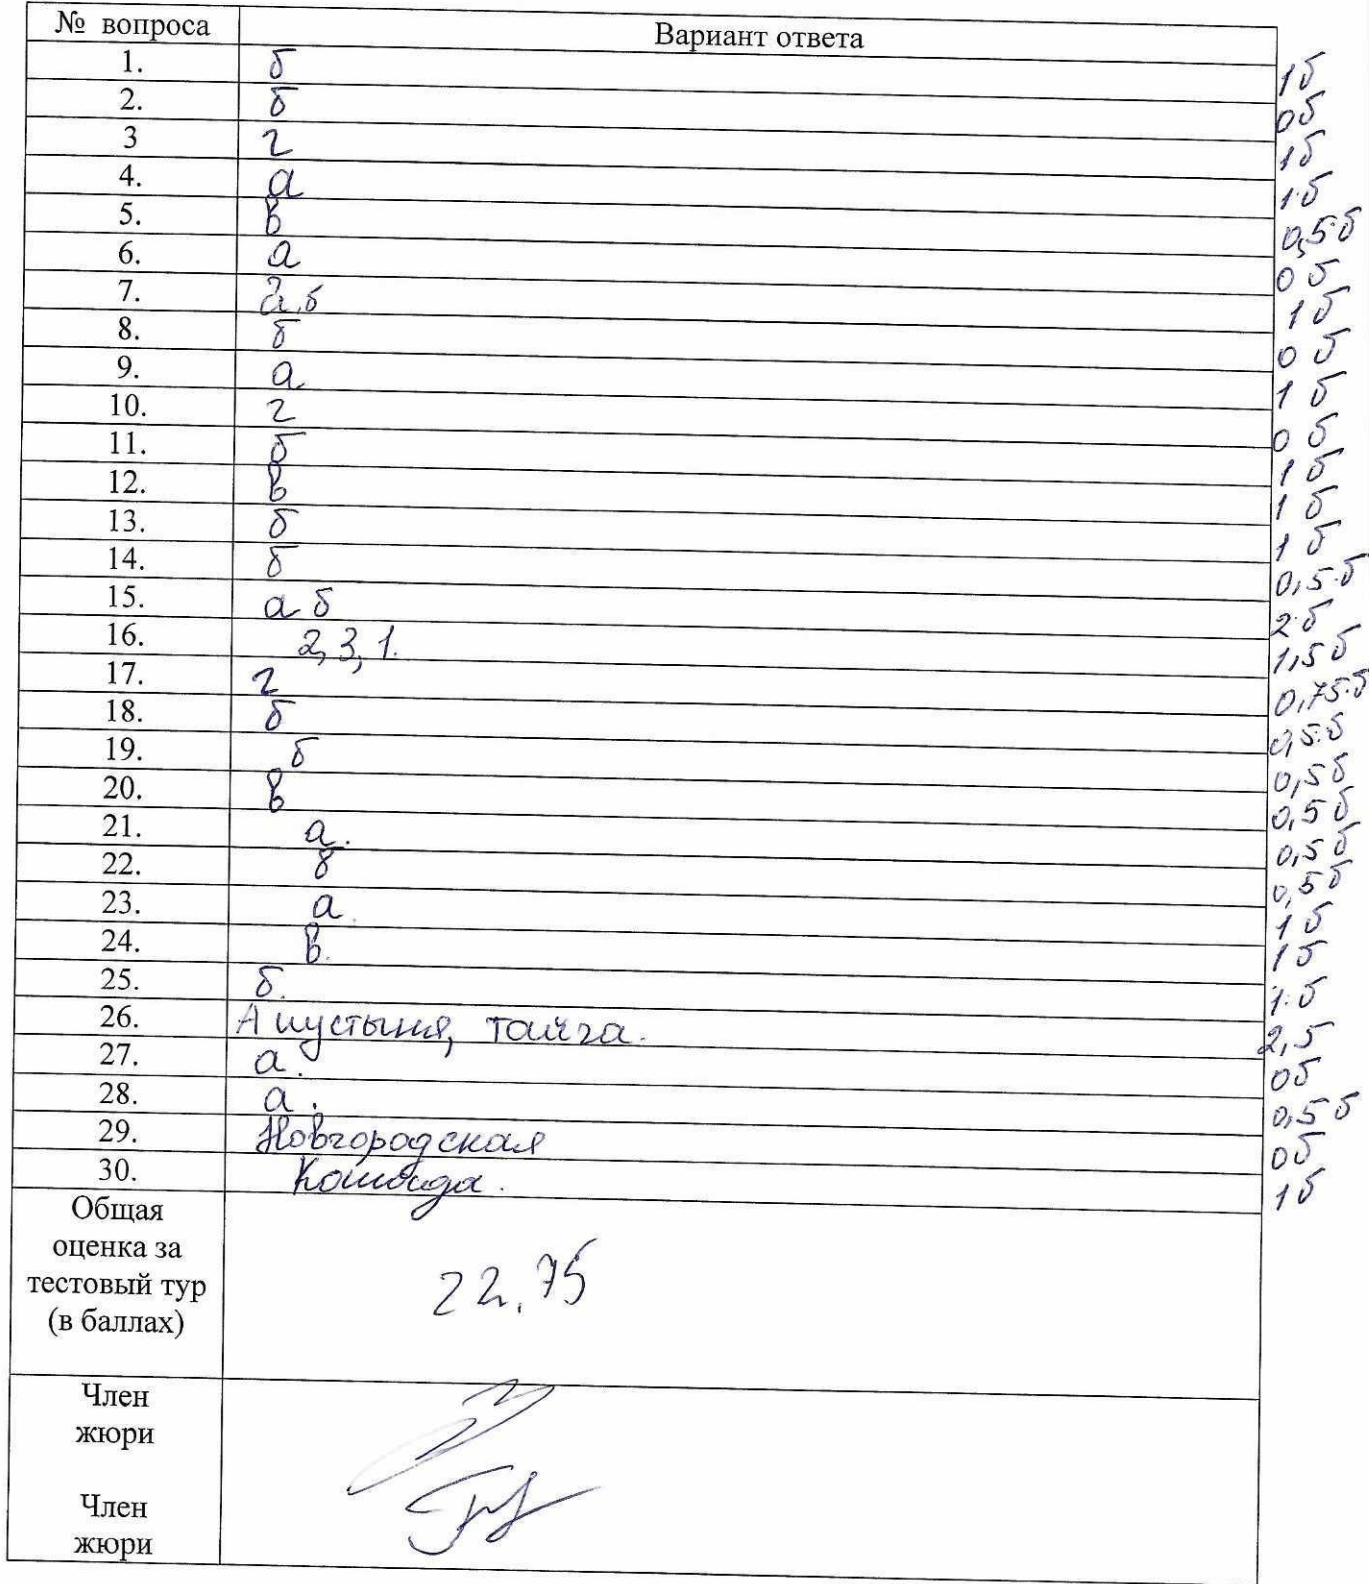 № вопроса Вариант ответа
1. б 1б
2. б 0б
3 г 1б
4. а 1б
5. в 0,5б
6. а 0б
7. а, б 1б
8. б 0б
9. а 1б
10. г 0б
11. б 1б
12. в 1б
13. б 1б
14. б 0,5б
15. а б 2б
16. 2, 3, 1. 1,5б
17. г 0,75б
18. б 0,5б
19. б 0,5б
20. в 0,5б
21. а. 0,5б
22. б 0,5б
23. а. 1б
24. в. 1б
25. б. 1б
26. А пустыня, тайга. 2,5
27. а. 0б
28. а. 0,5б
29. Новгородская 0б
30. 1б
Общая
оценка за
тестовый тур
(в баллах)
22.75
Член
жюри
Член
жюри